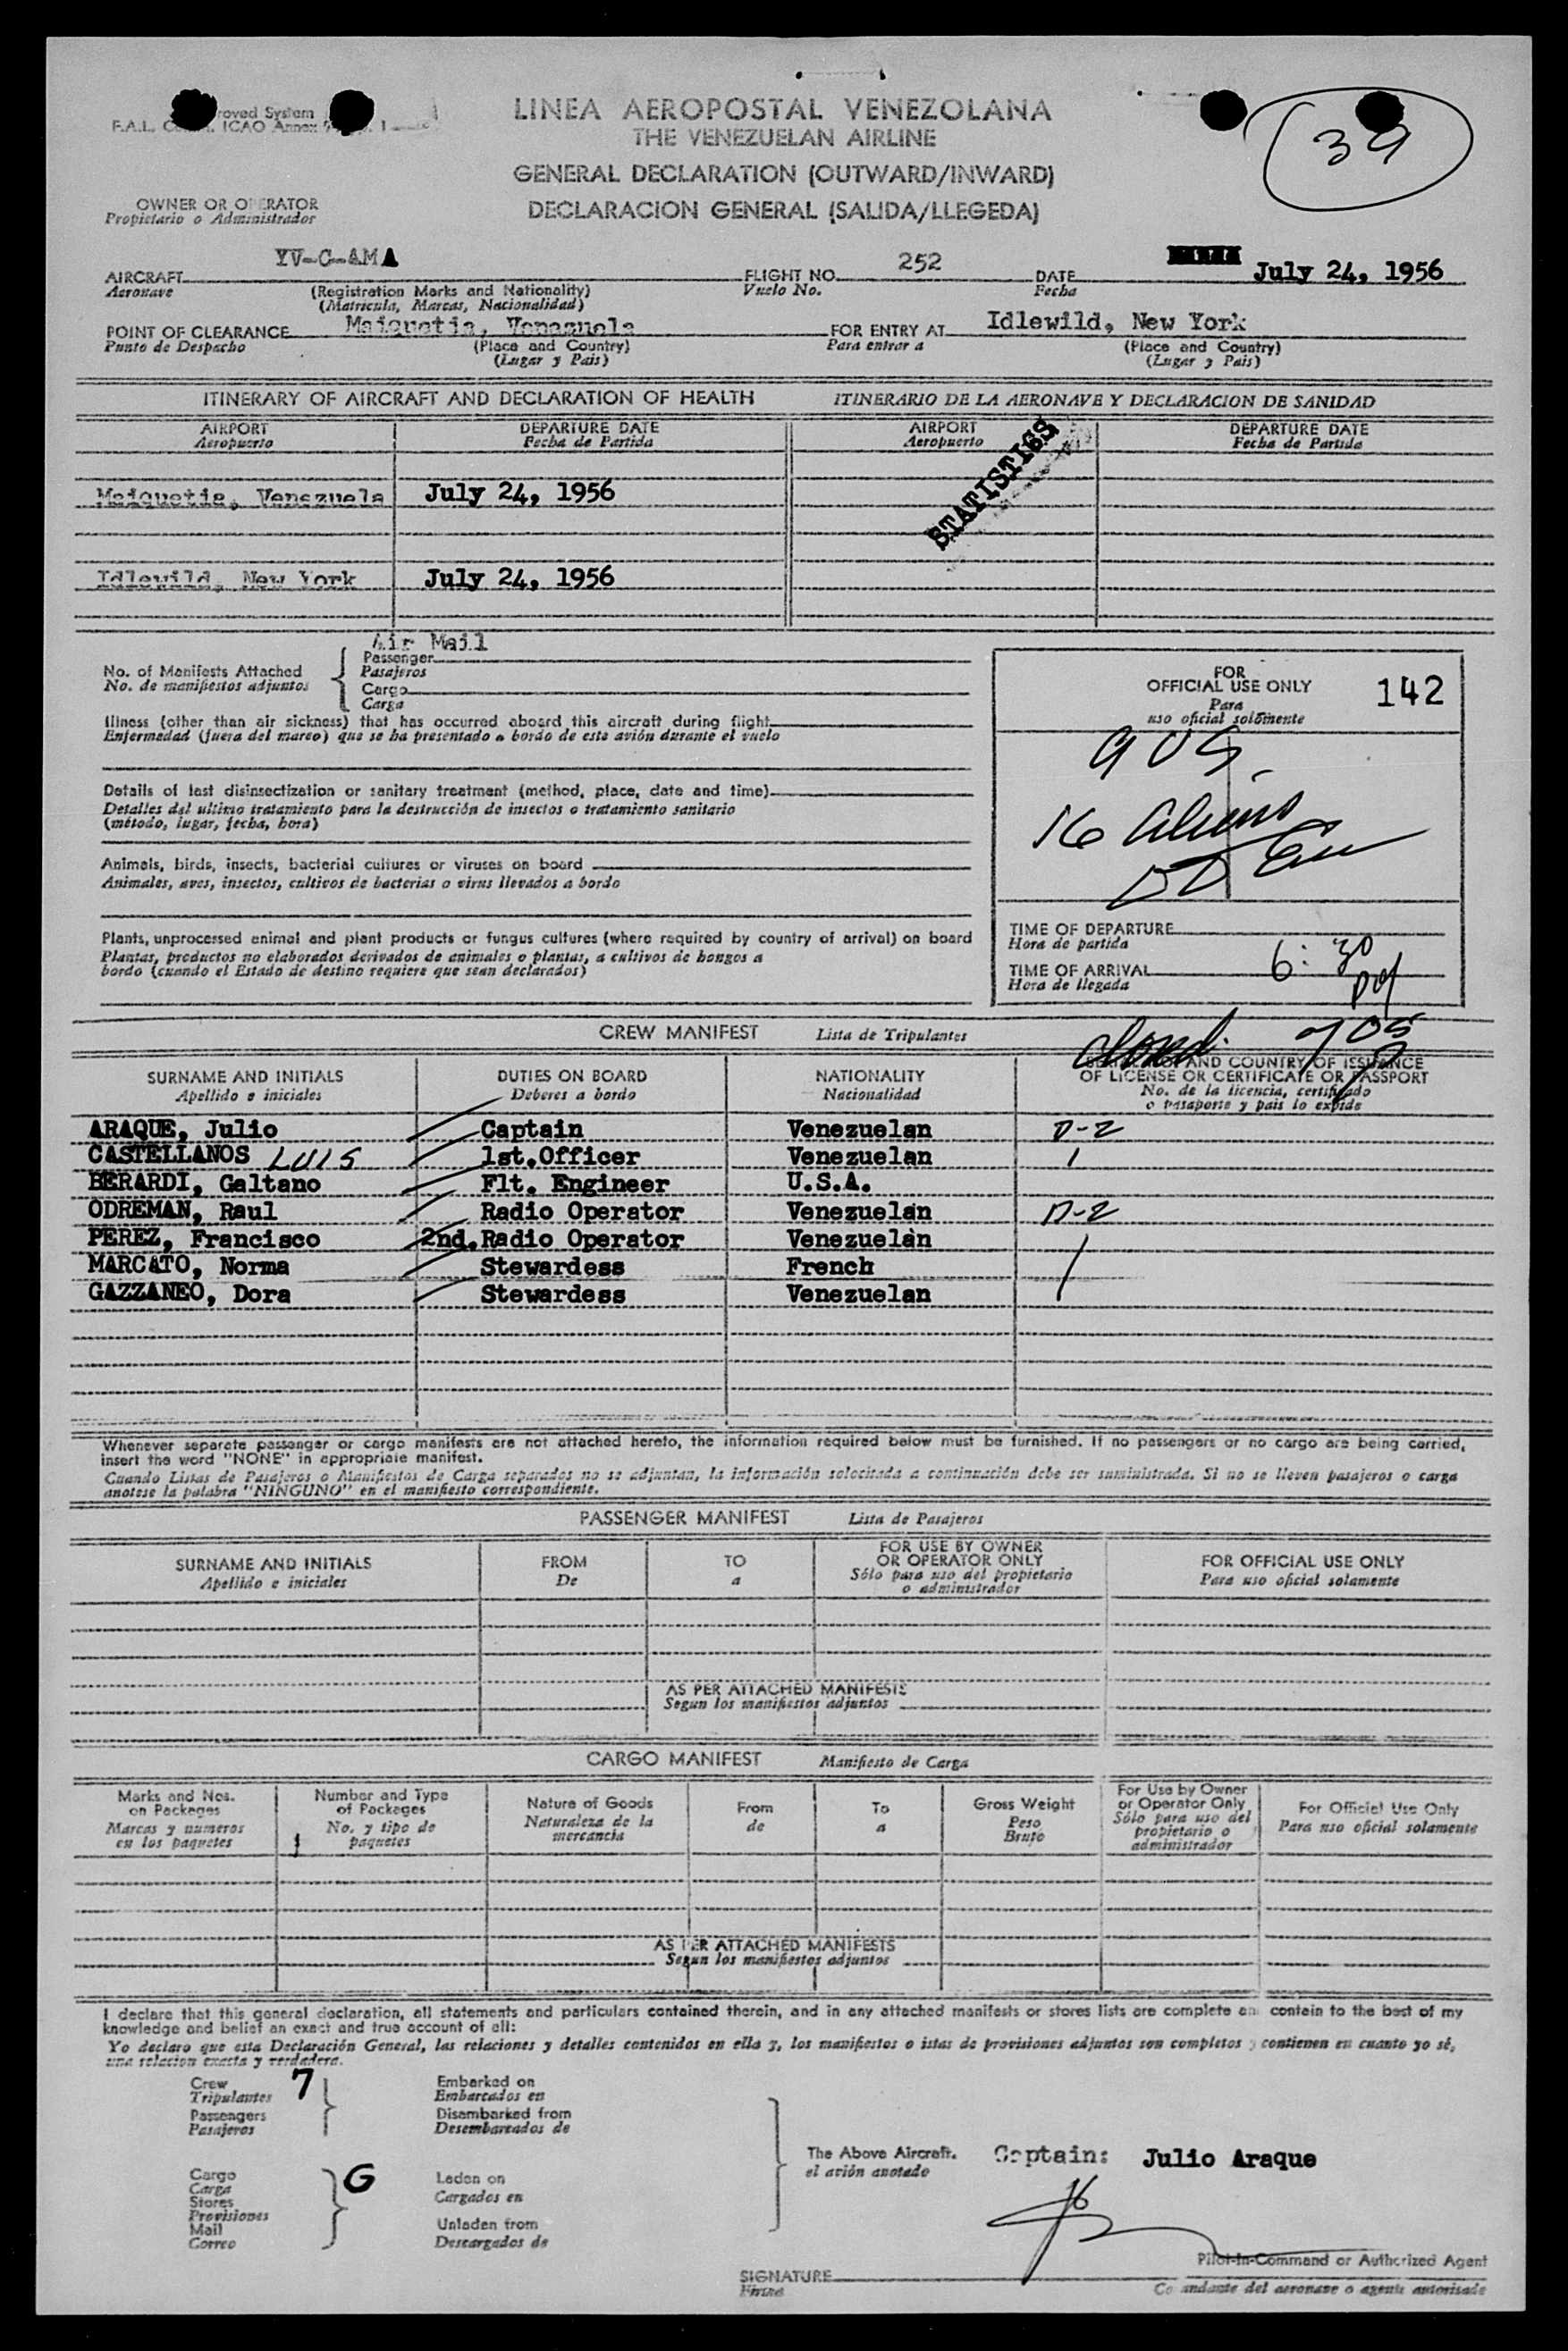 roved System
F.A.L. ICAO Annex
LINEA AEROPOSTAL VENEZOLANA
THE VENEZUELAN AIRLINE
GENERAL DECLARATION (OUTWARD/INWARD)
DECLARACION GENERAL (SALIDA/LLEGEDA)
39
OWNER OR OPERATOR
Propietario o Administrador
AIRCRAFT YV-C-AMA FLIGHT NO. 252 DATE July 24, 1956
Aeronave (Registration Marks and Nationality) Vuelo No. Fecha
(Matricula, Marcas, Nacionalidad)
POINT OF CLEARANCE Maiquetia, Venezuela FOR ENTRY AT Idlewild, New York
Punto de Despacho (Place and Country) Para entrar a (Place and Country)
(Lugar y Pais) (Lugar y Pais)
ITINERARY OF AIRCRAFT AND DECLARATION OF HEALTH ITINERARIO DE LA AERONAVE Y DECLARACION DE SANIDAD
AIRPORT DEPARTURE DATE AIRPORT DEPARTURE DATE
Aeropuerto Fecha de Partida Aeropuerto Fecha de Partida
STATISTICS
Maiquetia, Venezuela July 24, 1956
Idlewild, New York July 24, 1956
Air Mail
No. of Manifests Attached Passenger
No. de manifiestos adjuntos Pasajeros
Cargo
Carga
Illness (other than air sickness) that has occurred aboard this aircraft during flight
Enfermedad (fuera del mareo) que se ha presentado a bordo de este avión durante el vuelo
Details of last disinsectization or sanitary treatment (method, place, date and time)
Detalles del ultimo tratamiento para la destrucción de insectos o tratamiento sanitario
(método, lugar, fecha, hora)
Animals, birds, insects, bacterial cultures or viruses on board
Animales, aves, insectos, cultivos de bacterias o virus llevados a bordo
Plants, unprocessed animal and plant products or fungus cultures (where required by country of arrival) on board
Plantas, productos no elaborados derivados de animales o plantas, a cultivos de hongos a
bordo (cuando el Estado de destino requiere que sean declarados)
FOR
OFFICIAL USE ONLY 142
Para
uso oficial solamente
9 US,
16 Aliens
TIME OF DEPARTURE
Hora de partida
TIME OF ARRIVAL 6:30
Hora de llegada
closed. 705
CREW MANIFEST Lista de Tripulantes
SURNAME AND INITIALS DUTIES ON BOARD NATIONALITY AND COUNTRY OF ISSUANCE
OF LICENSE OR CERTIFICATE OR PASSPORT
Apellido e iniciales Deberes a bordo Nacionalidad No. de la licencia, certificado
o pasaporte y pais lo expide
ARAQUE, Julio Captain Venezuelan D-2
CASTELLANOS LUIS 1st.Officer Venezuelan
BERARDI, Galtano Flt. Engineer U.S.A.
ODREMAN, Raul Radio Operator Venezuelan D-2
PEREZ, Francisco 2nd.Radio Operator Venezuelan
MARCATO, Norma Stewardess French
GAZZANEO, Dora Stewardess Venezuelan
Whenever separate passenger or cargo manifests are not attached hereto, the information required below must be furnished. If no passengers or no cargo are being carried,
insert the word "NONE" in appropriate manifest.
Cuando Listas de Pasajeros o Manifiestos de Carga separados no se adjuntan, la información solocitada a continuación debe ser suministrada. Si no se lleven pasajeros o carga
anotese la palabra "NINGUNO" en el manifiesto correspondiente.
PASSENGER MANIFEST Lista de Pasajeros
SURNAME AND INITIALS FROM TO FOR USE BY OWNER
OR OPERATOR ONLY FOR OFFICIAL USE ONLY
Apellido e iniciales De a Sólo para uso del propietario
o administrador Para uso oficial solamente
AS PER ATTACHED MANIFESTS
Segun los manifiestos adjuntos
CARGO MANIFEST Manifiesto de Carga
Marks and Nos.
on Packages
Marcas y numeros
en los paquetes
Number and Type
of Packages
No. y tipo de
paquetes
Nature of Goods
Naturaleza de la
mercancia
From
de
To
a
Gross Weight
Peso
Bruto
For Use by Owner
or Operator Only
Sólo para uso del
propietario o
administrador
For Official Use Only
Para uso oficial solamente
AS PER ATTACHED MANIFESTS
Segun los manifiestos adjuntos
I declare that this general declaration, all statements and particulars contained therein, and in any attached manifests or stores lists are complete and contain to the best of my
knowledge and belief an exact and true account of all:
Yo declaro que esta Declaración General, las relaciones y detalles contenidos en ella y, los manifiestos o istas de provisiones adjuntos son completos y contienen en cuanto yo sé,
una relacion exacta y verdadera.
Crew 7 Embarked on
Tripulantes Embarcados en
Passengers Disembarked from
Pasajeros Desembarcados de
The Above Aircraft. Captain: Julio Araque
el avión anotado
Cargo G Laden on
Carga Cargados en
Stores
Provisiones
Mail Unladen from
Correo Descargados de
Pilot-in-Command or Authorized Agent
SIGNATURE
Firma Comandante del aeronave o agente autorisado